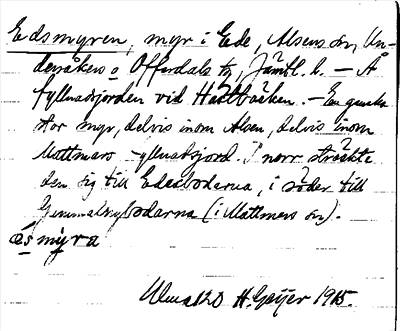 Edsmyren, myr i Ede, Alsens sn, Un-
dersåkers o Offerdals tg, Jämtl. l. – Å
fyllnadsjorden vid Hällbäcken. – En ganska
stor myr, delvis inom Alsen, delvis inom
Mattmars fyllnadsjord. I norr sträckte
den sig till Edesbodarna, i söder till
Gammalnybodarna (i Mattmars sn).
æsmyra
ULMA 120 H. Geijer 1915.